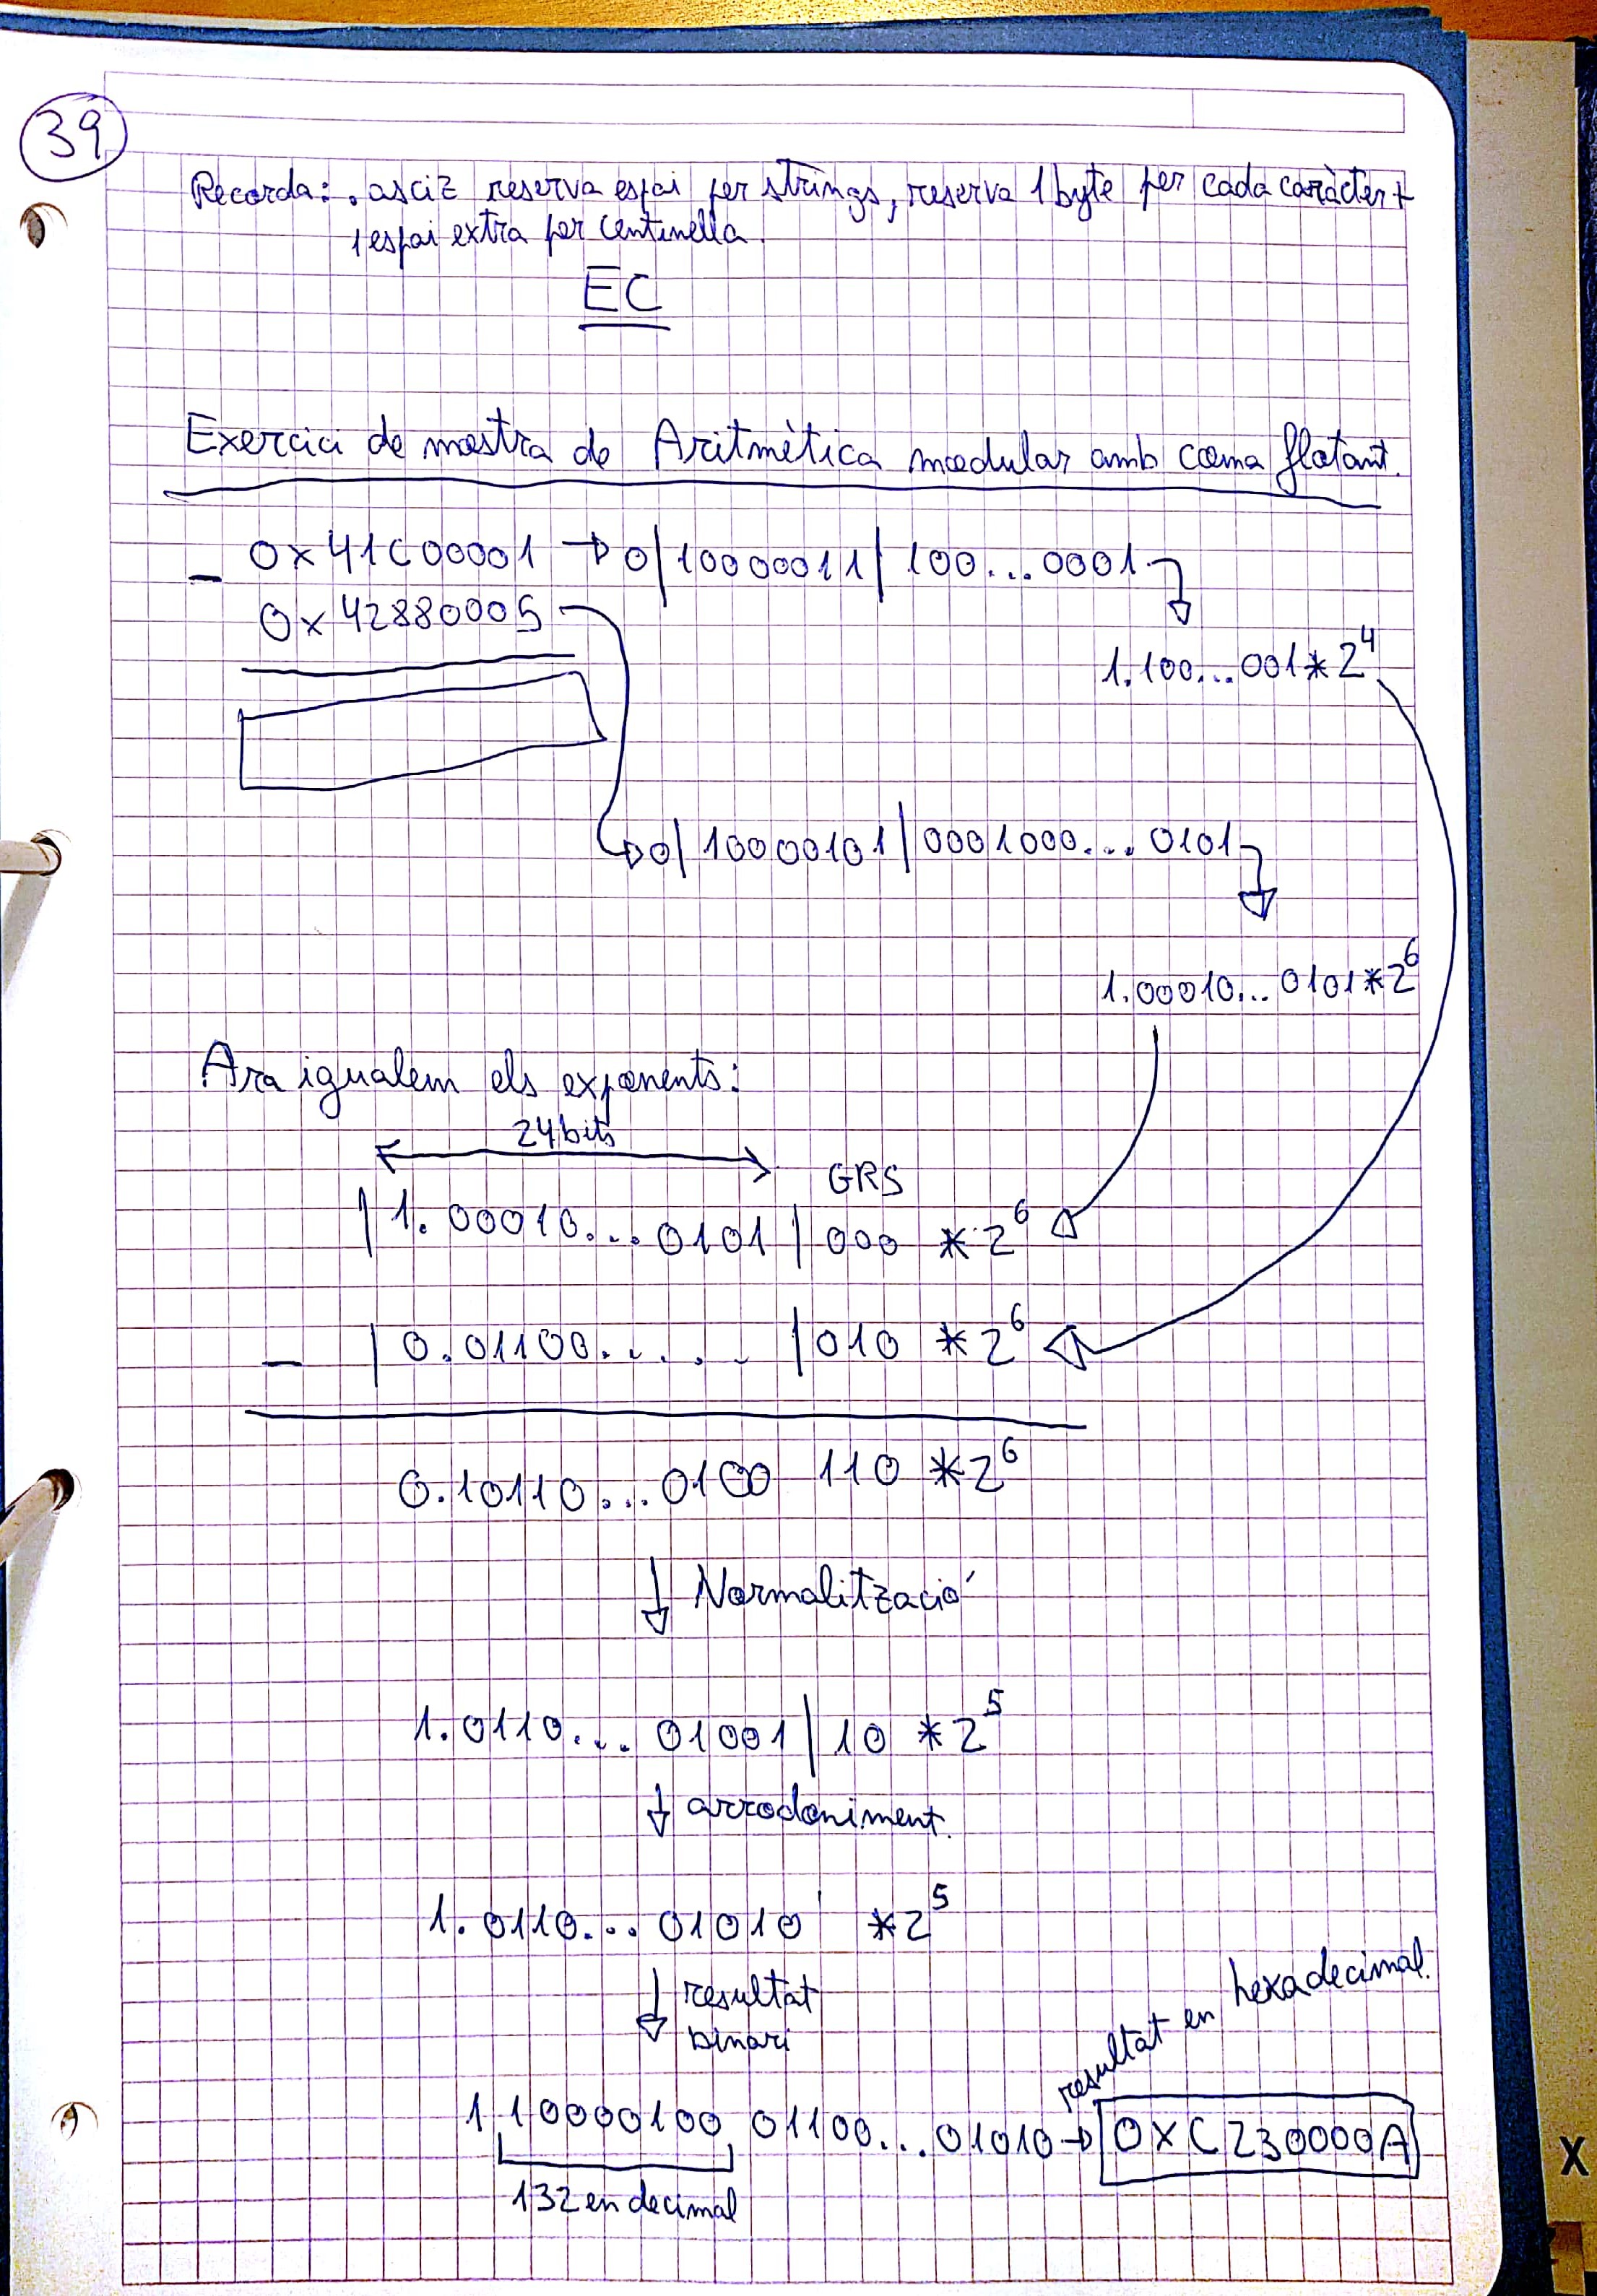 39
Recorda: .asciz reserva espai per strings, reserva 1 byte per cada caràcter +
1 espai extra per centinella.
EC
Exercici de mostra de Aritmètica modular amb coma flotant.
- 0x41C00001 → 0|10000011|100...0001
0x42880005
1.100...001*2^4
0|10000101|0001000...0101
1.00010...0101*2^6
Ara igualem els exponents:
24 bits
GRS
|1.00010...0101|000 *2^6
- |0.01100......|010 *2^6
0.10110...0100 110 *2^6
↓ Normalització
1.0110...01001|10 *2^5
↓ arrodoniment.
1.0110...01010 *2^5
↓ resultat
binari
resultat en hexadecimal.
1 10000100 01100...01010 → 0XC230000A
132 en decimal
X